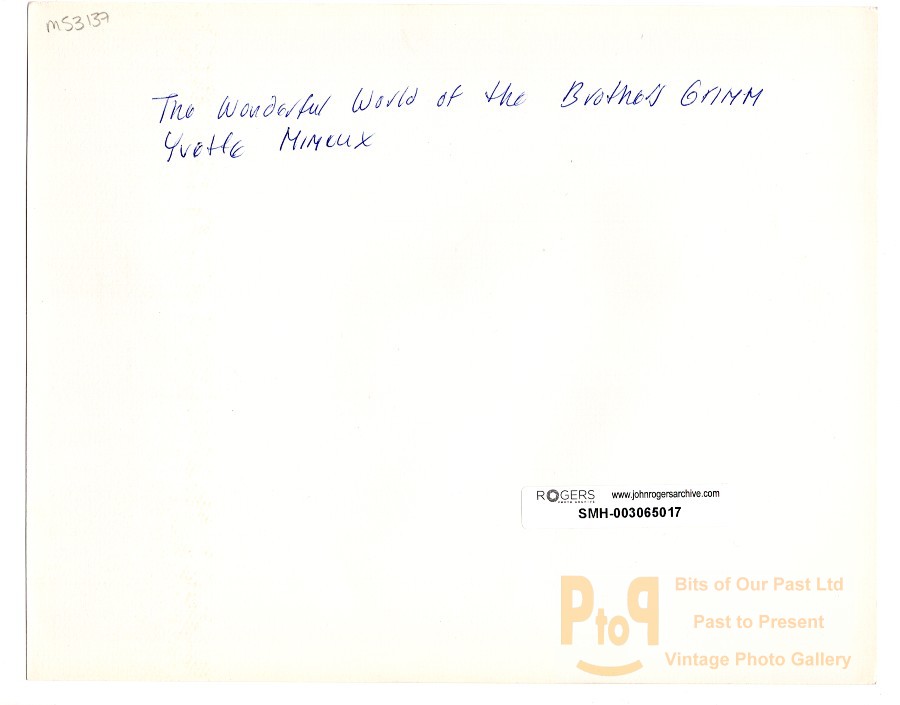 MS3137
The Wonderful World of the Brothers Grimm
Yvette Mimeux
ROGERS www.johnrogersarchive.com
PHOTO ARCHIVE
SMH-003065017
PtoP
Bits of Our Past Ltd
Past to Present
Vintage Photo Gallery